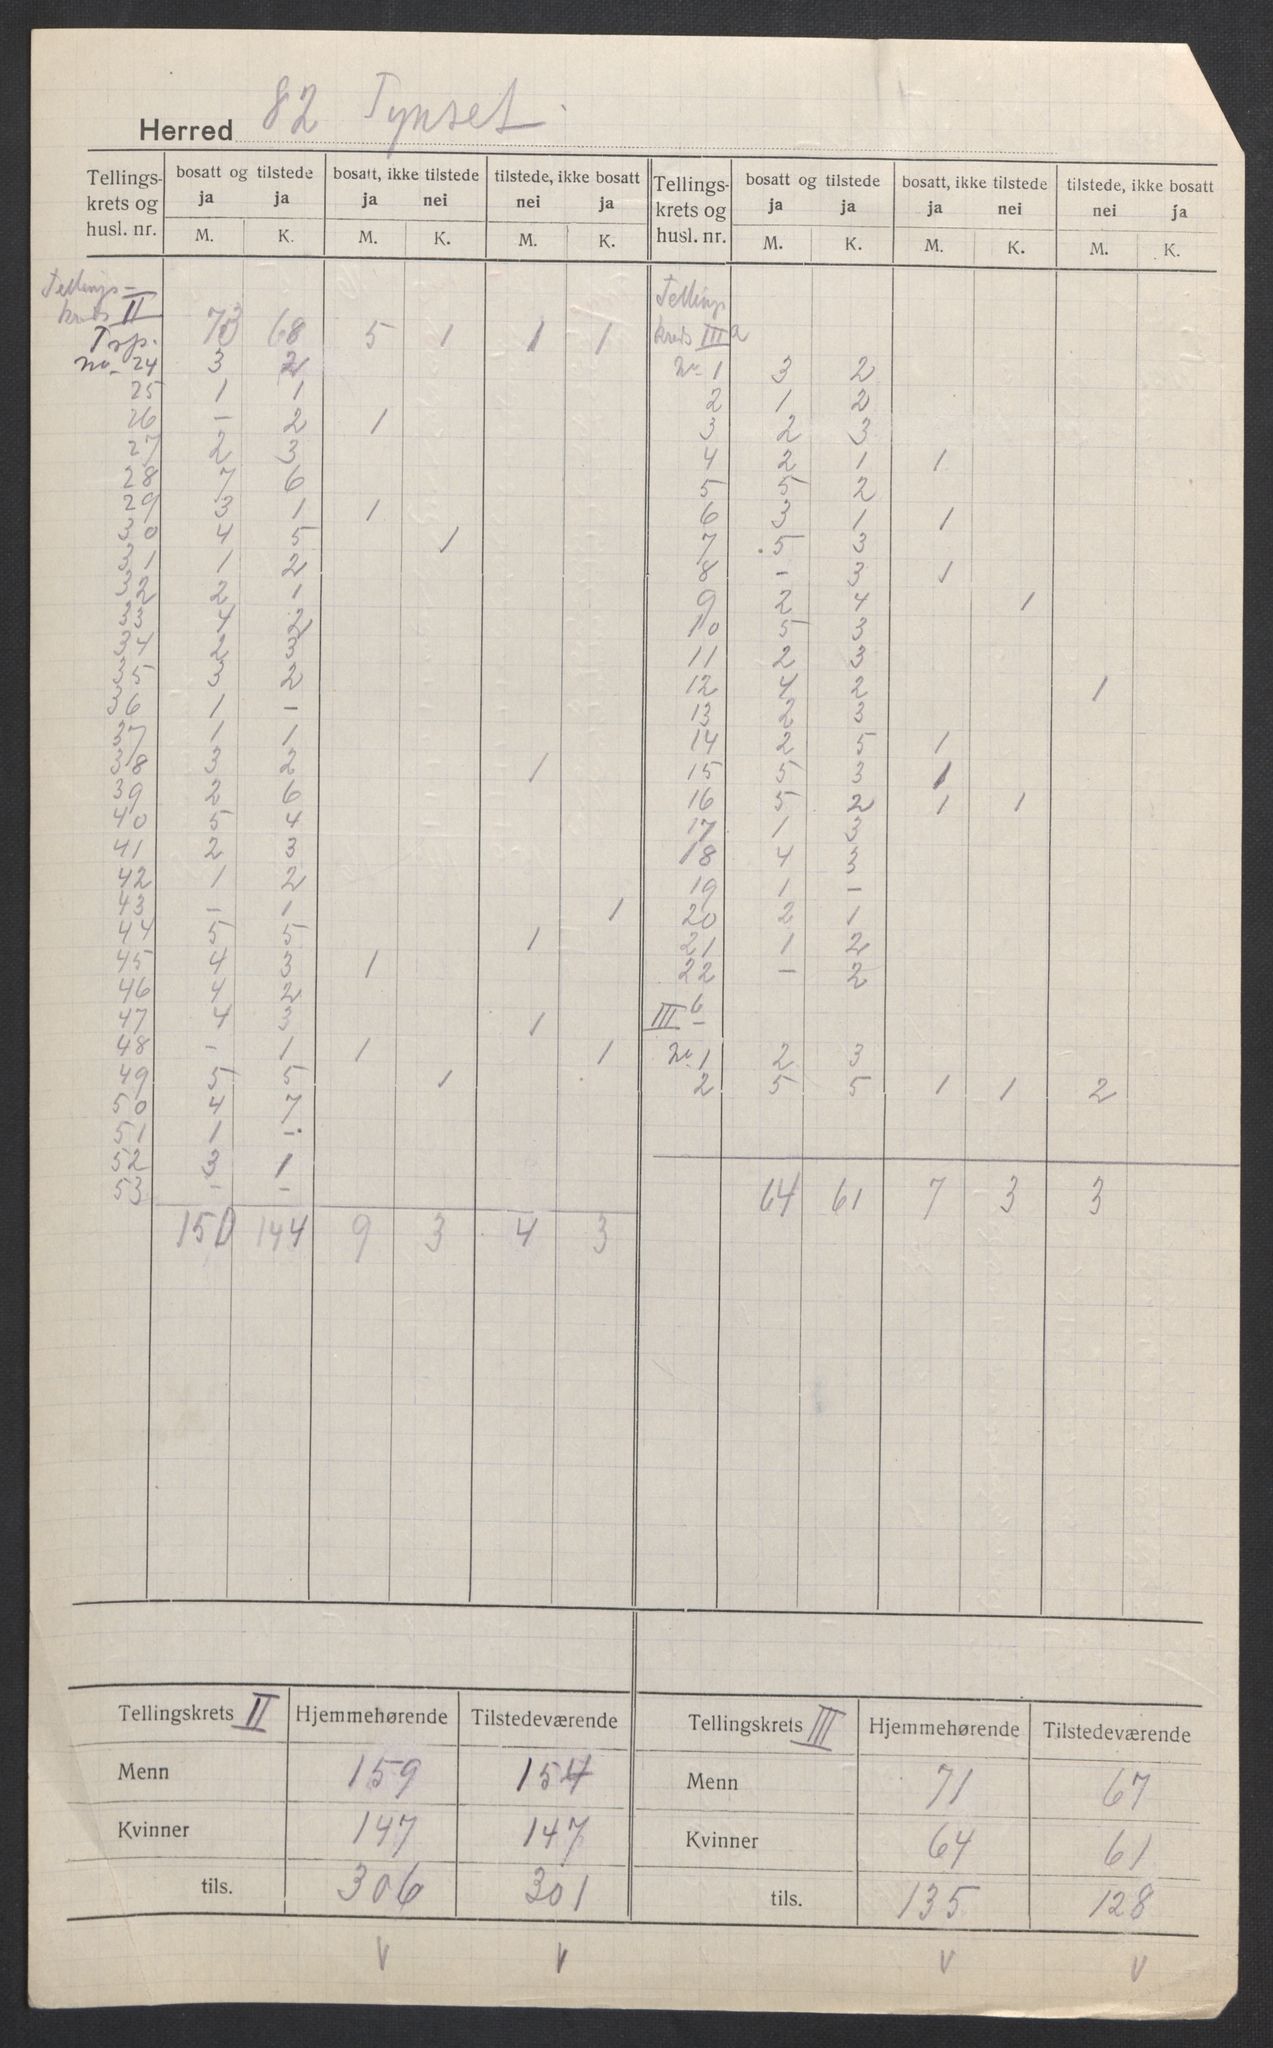 Herred 82 Tynset
Tellings- krets og husl. nr. | bosatt og tilstede ja ja M. K. | bosatt, ikke tilstede ja nei M. K. | tilstede, ikke bosatt nei ja M. K. | Tellings- krets og husl. nr. | bosatt og tilstede ja ja M. K. | bosatt, ikke tilstede ja nei M. K. | tilstede, ikke bosatt nei ja M. K.
Tellings-
krets II
Trsp. 73 68 5 1 1 1
no 24 3 2
25 1 1
26 - 2 1
27 2 3
28 7 6
29 3 1 1
30 4 5 1
31 1 2
32 2 1
33 4 2
34 2 3
35 3 2
36 1 -
37 1 1
38 3 2 1
39 2 6
40 5 4
41 2 3
42 1 2
43 - 1 1
44 5 5 1
45 4 3 1
46 4 2
47 4 3 1
48 - 1 1 1
49 5 5 1
50 4 7
51 1 -
52 3 1
53 - -
150 144 9 3 4 3
Tellings
kreds III a
No 1 3 2
2 1 2
3 2 3
4 2 1 1
5 5 2
6 3 1 1
7 5 3
8 - 3 1
9 2 4 1
10 5 3
11 2 3
12 4 2 1
13 2 3
14 2 5 1
15 5 3 1
16 5 2 1 1
17 1 3
18 4 3
19 1 -
20 2 1
21 1 2
22 - 2
III b
No 1 2 3
2 5 5 1 1 2
64 61 7 3 3
Tellingskrets II | Hjemmehørende | Tilstedeværende
Menn 159 154
Kvinner 147 147
tils. 306 301
V V
Tellingskrets III | Hjemmehørende | Tilstedeværende
Menn 71 67
Kvinner 64 61
tils. 135 128
V V